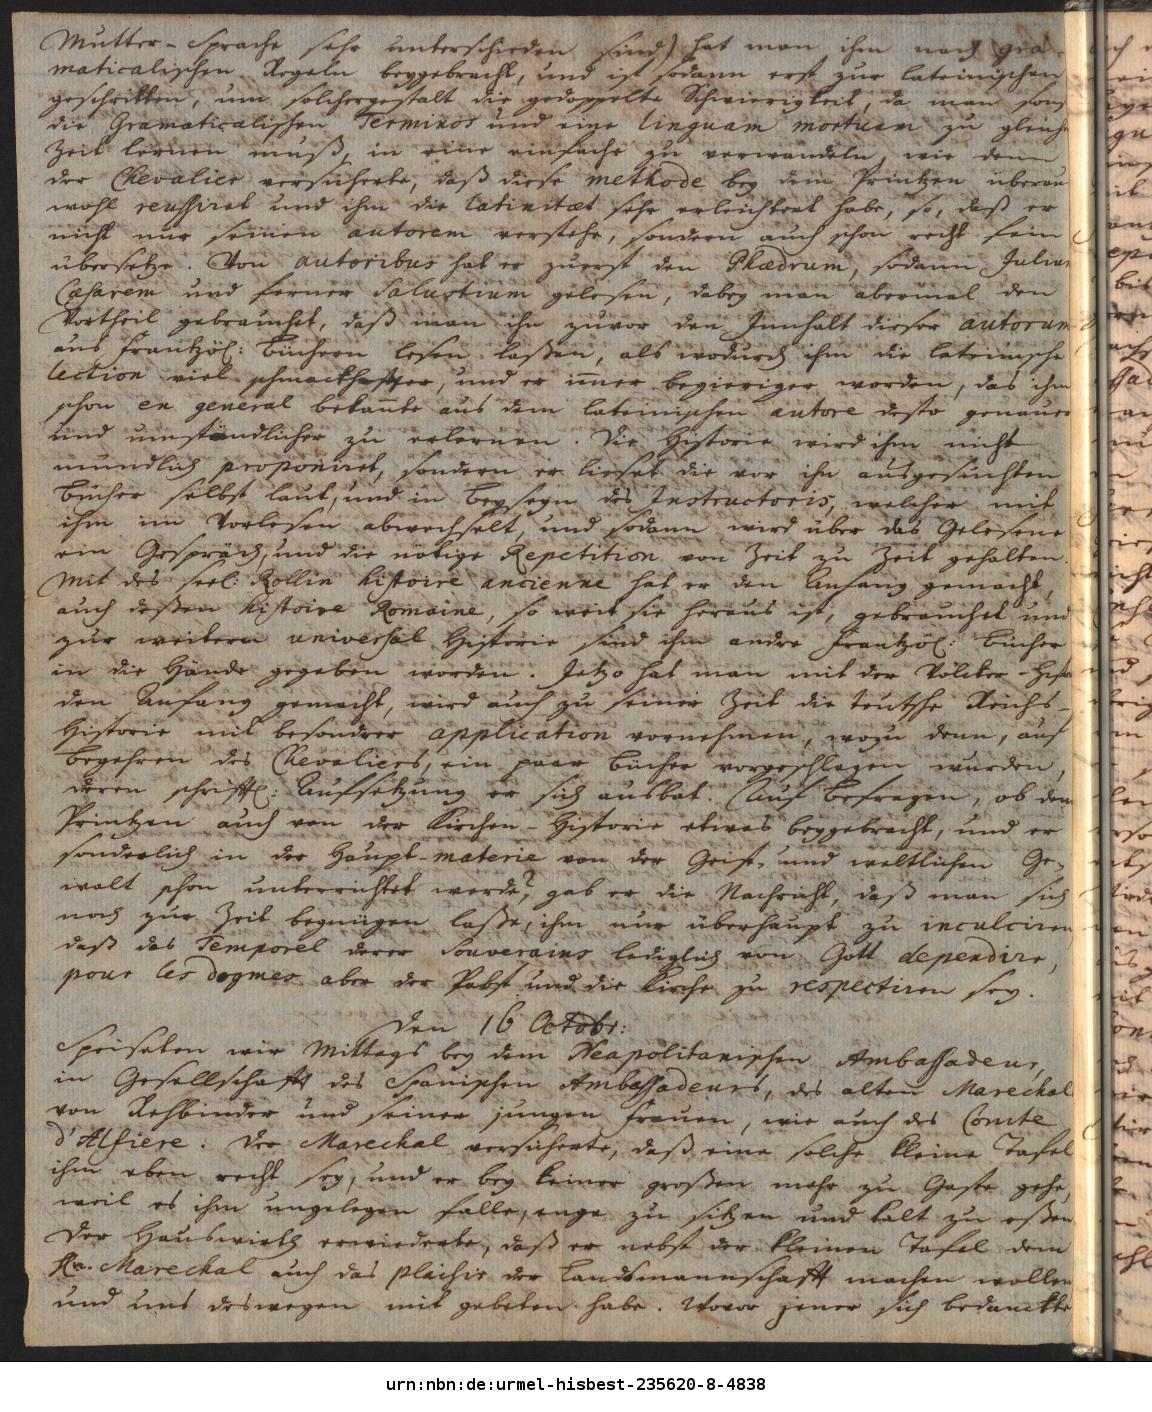 Mutter-Sprache sehr unterschieden sind) hat man ihm nach gra-
maticalischen Regeln beygebracht, und ist sodann erst zur lateinischen
geschritten, um solchergestalt die gedoppelte Schwierigkeit, da man sons
die Gramaticalischen Terminos und eine linguam mortuam zu gleich
Zeit lernen muß, in eine einfache zu verwandeln, wie denn
der Chevalier versicherte, daß diese methode bey dem Printzen überau
wohl reussiret und ihm die latinitaet sehr erleichtert habe, so, daß er
nicht nur seinen autorem verstehe, sondern auch schon recht fein
übersetze. Von autoribus hat er zuerst den Phaedrum, sodann Julium
Caesarem und ferner Salustium gelesen, dabey man abermal den
Vortheil gebrauchet, daß man ihn zuvor den Innhalt dieser autorum
aus frantzös: Büchern lesen laßen, als wodurch ihm die lateinische
lection viel schmackhafter, und er im̄er begieriger worden, das ihm
schon en general bekan̄te aus dem lateinischen autore desto genauer
und umständlicher zu erlernen. Die Historie wird ihm nicht
mündlich proponiret, sondern er lieset die vor ihn ausgesuchten
Bücher selbst laut, und in beyseyn des Instructoris, welcher mit
ihm im Vorlesen abwechselt, und sodann wird über das Gelesene
ein Gespräch, und die nötige Repetition von Zeit zu Zeit gehalten.
Mit des seel: Rollin histoire ancienne hat er den Anfang gemacht,
auch deßen histoire Romaine, so weit sie heraus ist, gebrauchet und
zur weitern universal Historie sind ihm andre frantzös: Bücher
in die Hände gegeben worden. Jetzo hat man mit der Völcker-Histo
den Anfang gemacht, wird auch zu seiner Zeit die teutsche Reichs-
Historie mit besondrer application vornehmen, wozu denn, auf
Begehren des Chevaliers, ein paar Bücher vorgeschlagen wurden,
deren schriftl: Aufsetzung er sich ausbat. Auf Befragen, ob dem
Printzen auch von der Kirchen-Historie etwas beygebracht, und er
sonderlich in der Haupt-materie von der Geist- und weltlichen Ge-
walt schon unterrichtet werde? gab er die Nachricht, daß man sich
noch zur Zeit begnügen laße, ihm nur überhaupt zu inculciren
daß das Temporel derer Souverains lediglich von Gott dependire,
pour les dogmes aber der Pabst und die Kirche zu respectiren sey.
Den 16 Octobr:
Speiseten wir Mittags bey dem Neapolitanischen Ambassadeur,
in Gesellschafft des Spanischen Ambassadeurs, des alten Marechal
von Rehbinder und seiner jungen Frauen, wie auch des Comte
d'Alfiere. Der Marechal versicherte, daß eine solche kleine Tafel
ihm eben recht sey, und er bey keiner großen mehr zu Gaste gehe,
weil es ihm ungelegen falle, enge zu sitzen und kalt zu eßen
Der Hauswirth erwiederte, daß er nebst der kleinen Tafel dem
Hn. Marechal auch das plaisir der Landsmannschafft machen wollen
und uns deswegen mit gebeten habe. Wovor jener sich bedanckte
urn:nbn:de:urmel-hisbest-235620-8-4838